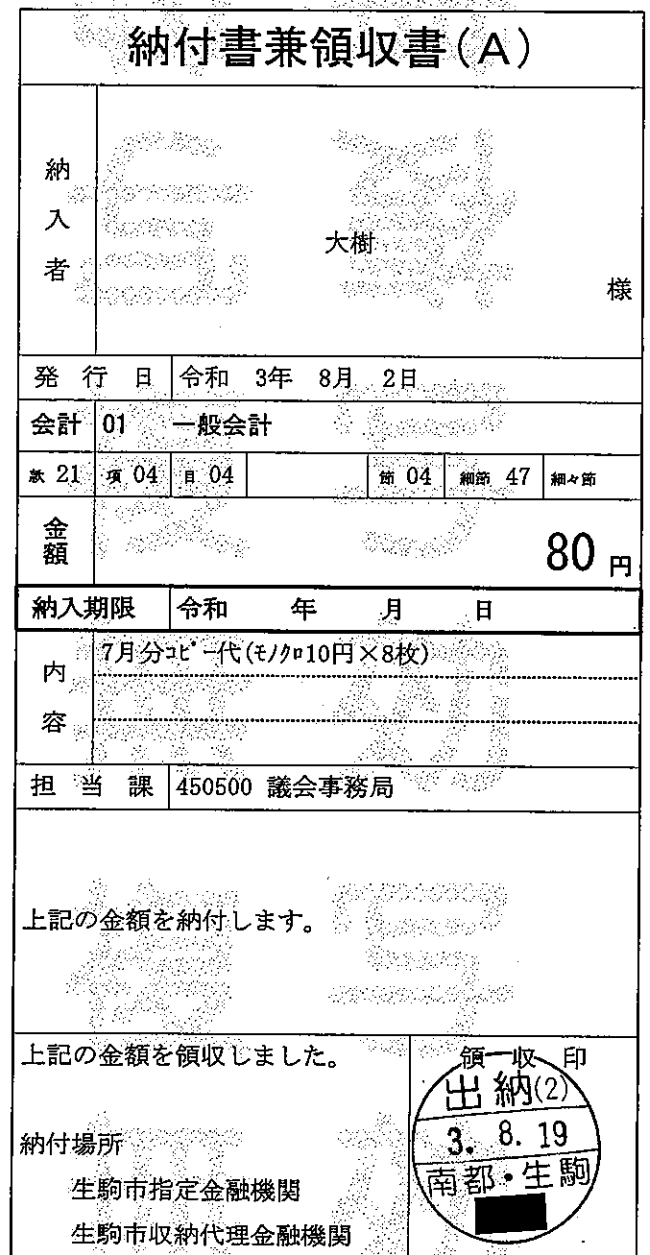 納付書兼領収書(A)
納入者
大樹
様
発行日 令和 3年 8月 2日
会計 01 一般会計
款 21 項 04 目 04 節 04 細節 47 細々節
金額 80 円
納入期限 令和 年 月 日
内容 7月分ｺﾋﾟｰ代(ﾓﾉｸﾛ10円×8枚)
担当課 450500 議会事務局
上記の金額を納付します。
上記の金額を領収しました。
領収印
出納(2)
3. 8. 19
南都・生駒
納付場所
生駒市指定金融機関
生駒市収納代理金融機関